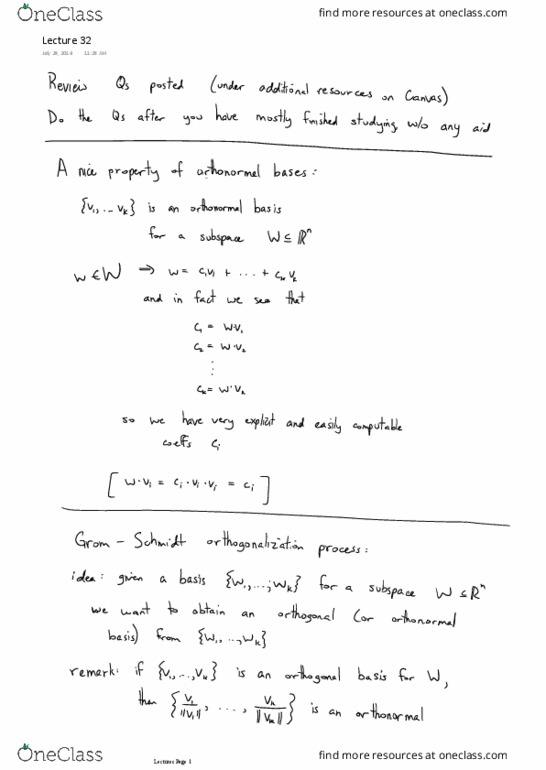 OneClass
find more resources at oneclass.com
Lecture 32
July 28, 2014 11:28 AM
Review Qs posted (under additional resources on Canvas)
Do the Qs after you have mostly finished studying w/o any aid
A nice property of orthonormal bases:
{v₁, ... vₖ} is an orthonormal basis
for a subspace W ⊆ ℝⁿ
w ∈ W → w = c₁v₁ + ... + cₖvₖ
and in fact we see that
c₁ = w·v₁
c₂ = w·v₂
⋮
cₖ = w·vₖ
so we have very explicit and easily computable
coeffs cᵢ
[ w·vᵢ = cᵢ·vᵢ·vᵢ = cᵢ ]
Grom - Schmidt orthogonalization process:
idea: given a basis {w₁, ..., wₖ} for a subspace W ⊆ ℝⁿ
we want to obtain an orthogonal (or orthonormal
basis) from {w₁, ..., wₖ}
remark: if {v₁, ..., vₖ} is an orthogonal basis for W,
then {v₁/‖v₁‖, ..., vₖ/‖vₖ‖} is an orthonormal
Lectures Page 1
OneClass
find more resources at oneclass.com